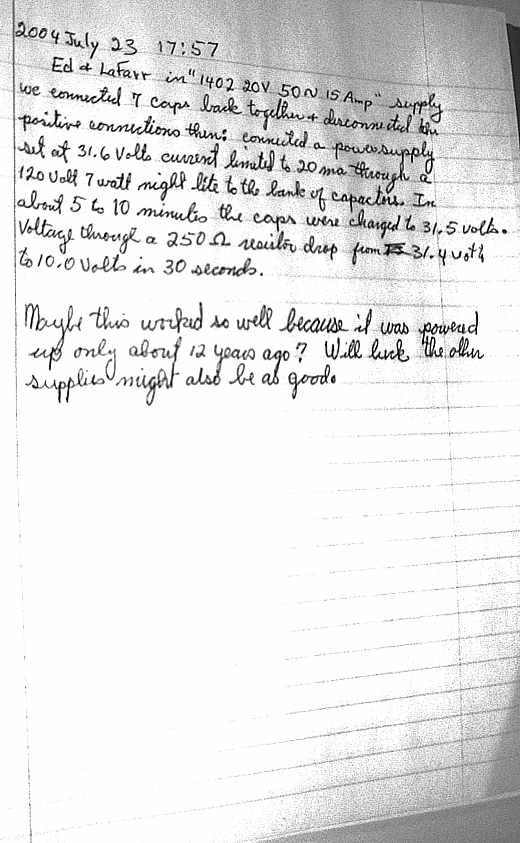 2004 July 23 17:57
Ed & LaFarr in "1402 20V 50~ 15 Amp" supply
we connected 7 caps back together + disconnected
positive connections then: connected a power supply
set at 31.6 Volts current limited to 20 ma through a
120 Volt 7 watt night lite to the bank of capacitors. In
about 5 to 10 minutes the caps were charged to 31.5 volts.
Voltage through a 250 Ω resistor drop from 31.4 volts
to 10.0 Volts in 30 seconds.
Maybe this worked so well because it was powered
up only about 12 years ago? Will luck the other
supplies might also be as good.